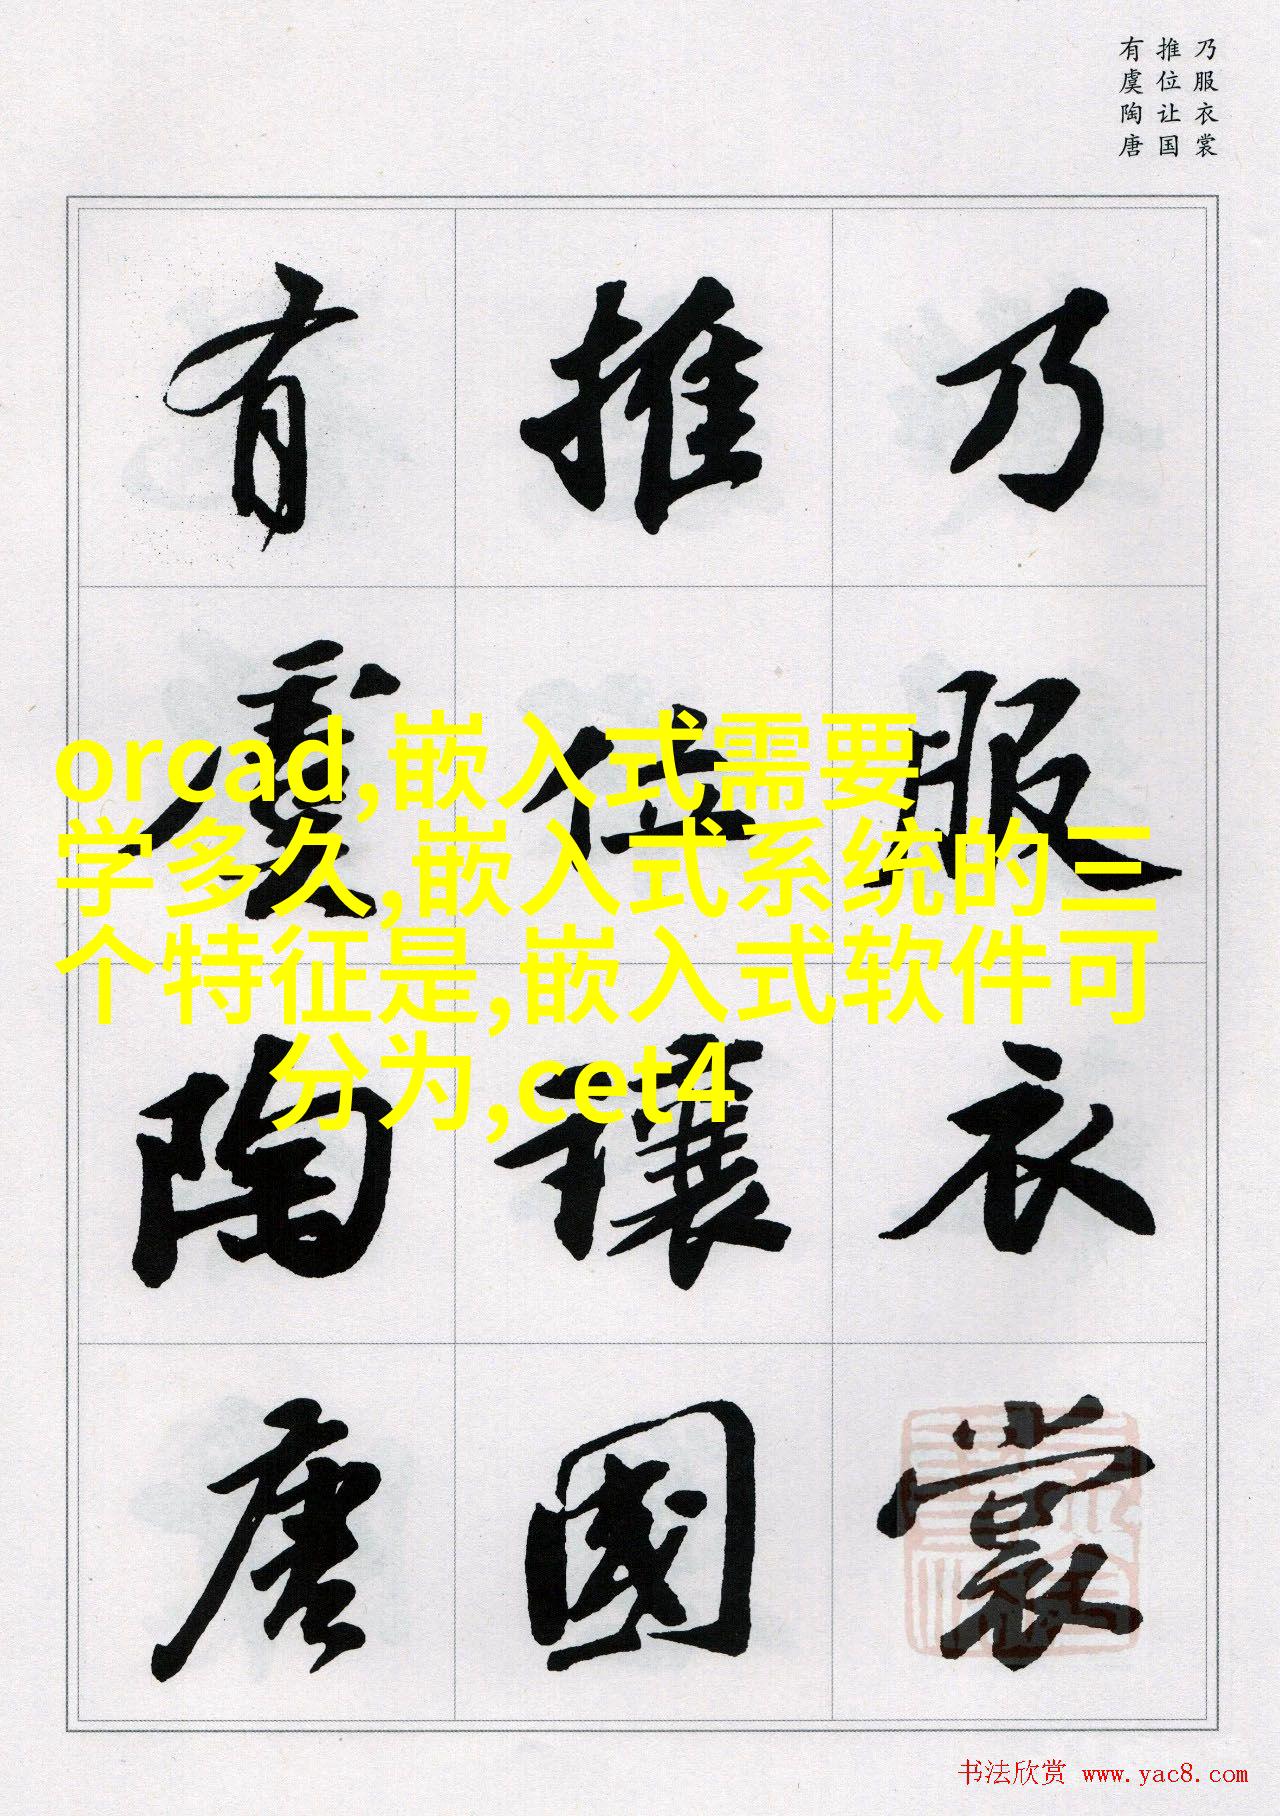 乃服衣裳
推位让国
有虞陶唐
乃服衣裳
推位讓國
有虞陶唐
orcad,嵌入式需要
学多久,嵌入式系统的三
个特征是,嵌入式软件可
分为,cet4
书法欣赏 www.yac8.com